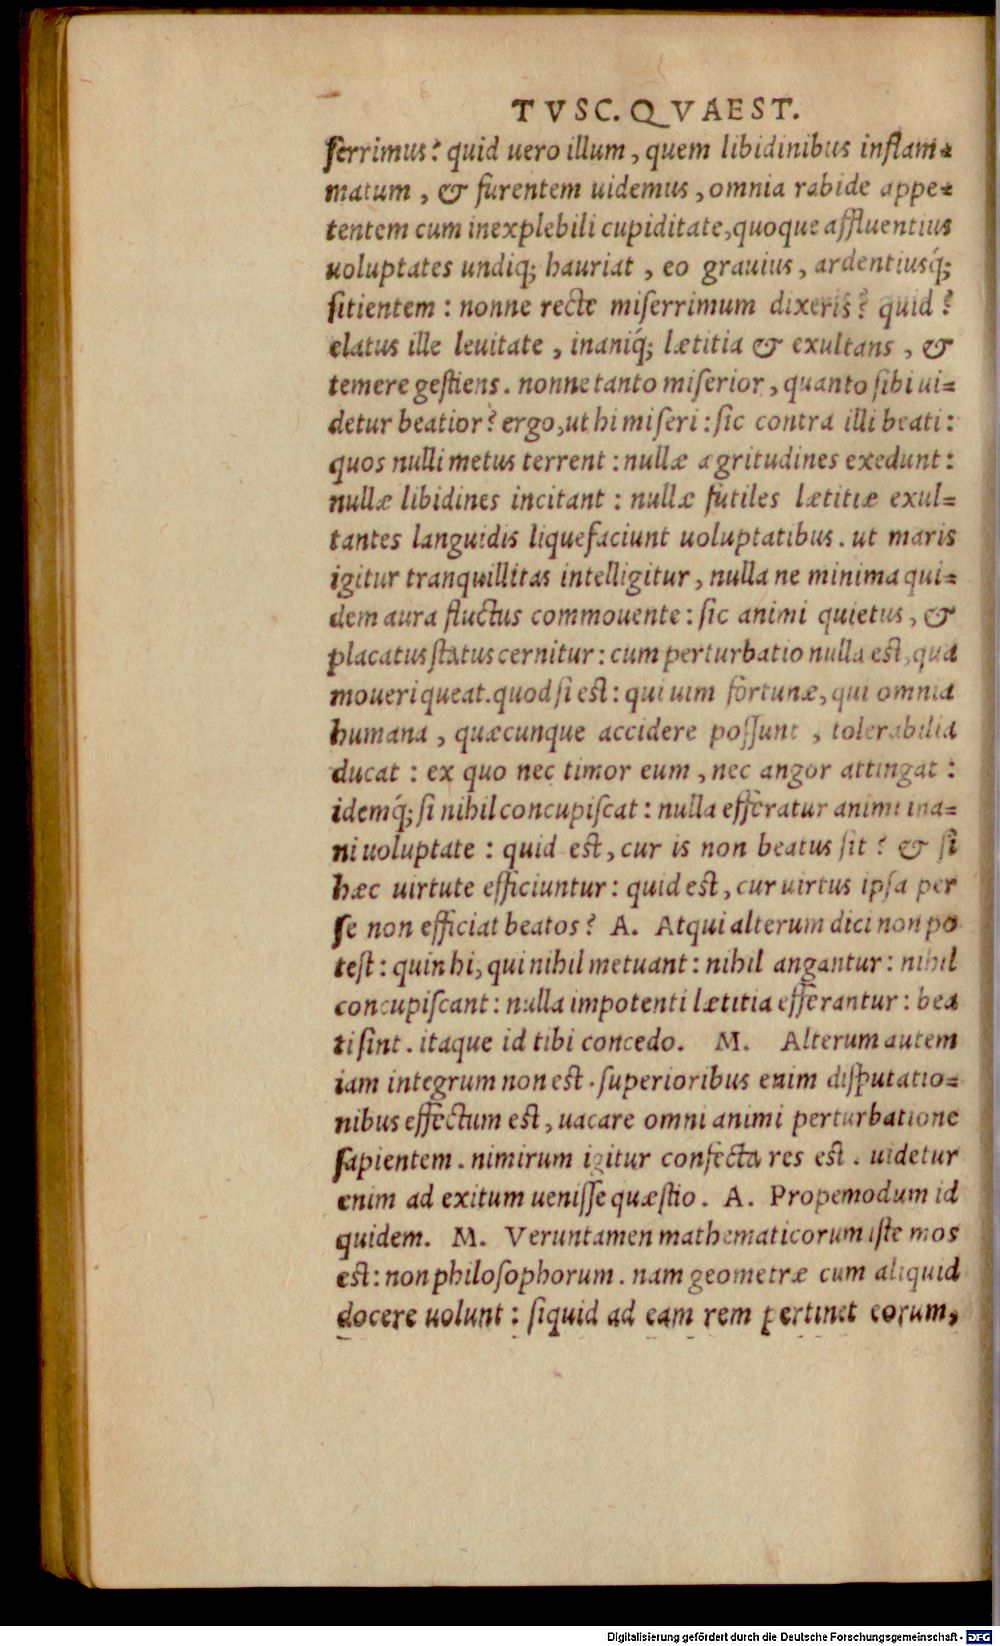 TVSC. QVAEST.
ſerrimus? quid uero illum, quem libidinibus inflam=
matum, & furentem uidemus, omnia rabide appe=
tentem cum inexplebili cupiditate, quoque affluentius
uoluptates undiq; hauriat, eo grauius, ardentiusq́;
ſitientem: nonne recte miſerrimum dixeris? quid?
elatus ille leuitate, inaniq́; lætitia & exultans, &
temere geſtiens. nonne tanto miſerior, quanto ſibi ui=
detur beatior? ergo, ut hi miſeri: ſic contra illi beati:
quos nulli metus terrent: nullæ ægritudines exedunt:
nullæ libidines incitant: nullæ futiles lætitiæ exul=
tantes languidis liquefaciunt uoluptatibus. ut maris
igitur tranquillitas intelligitur, nulla ne minima qui=
dem aura fluctus commouente: ſic animi quietus, &
placatus ſtatus cernitur: cum perturbatio nulla eſt, qua
moueri queat. quod ſi eſt: qui uim fortunæ, qui omnia
humana, quæcunque accidere poſſunt, tolerabilia
ducat: ex quo nec timor eum, nec angor attingat:
idemq́; ſi nihil concupiſcat: nulla efferatur animi ina=
ni uoluptate: quid eſt, cur is non beatus ſit? & ſi
hæc uirtute efficiuntur: quid eſt, cur uirtus ipſa per
ſe non efficiat beatos? A. Atqui alterum dici non po
teſt: quin hi, qui nihil metuant: nihil angantur: nihil
concupiſcant: nulla impotenti lætitia efferantur: bea
ti ſint. itaque id tibi concedo. M. Alterum autem
iam integrum non eſt. ſuperioribus enim diſputatio=
nibus effectum eſt, uacare omni animi perturbatione
ſapientem. nimirum igitur confecta res eſt. uidetur
enim ad exitum ueniſſe quæſtio. A. Propemodum id
quidem. M. Veruntamen mathematicorum iſte mos
eſt: non philoſophorum. nam geometræ cum aliquid
docere uolunt: ſiquid ad eam rem pertinet eorum,
Digitalisierung gefördert durch die Deutsche Forschungsgemeinschaft - DFG